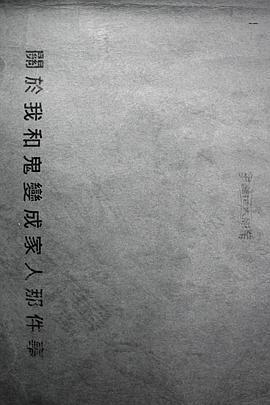 關於我和鬼變成家人那件事